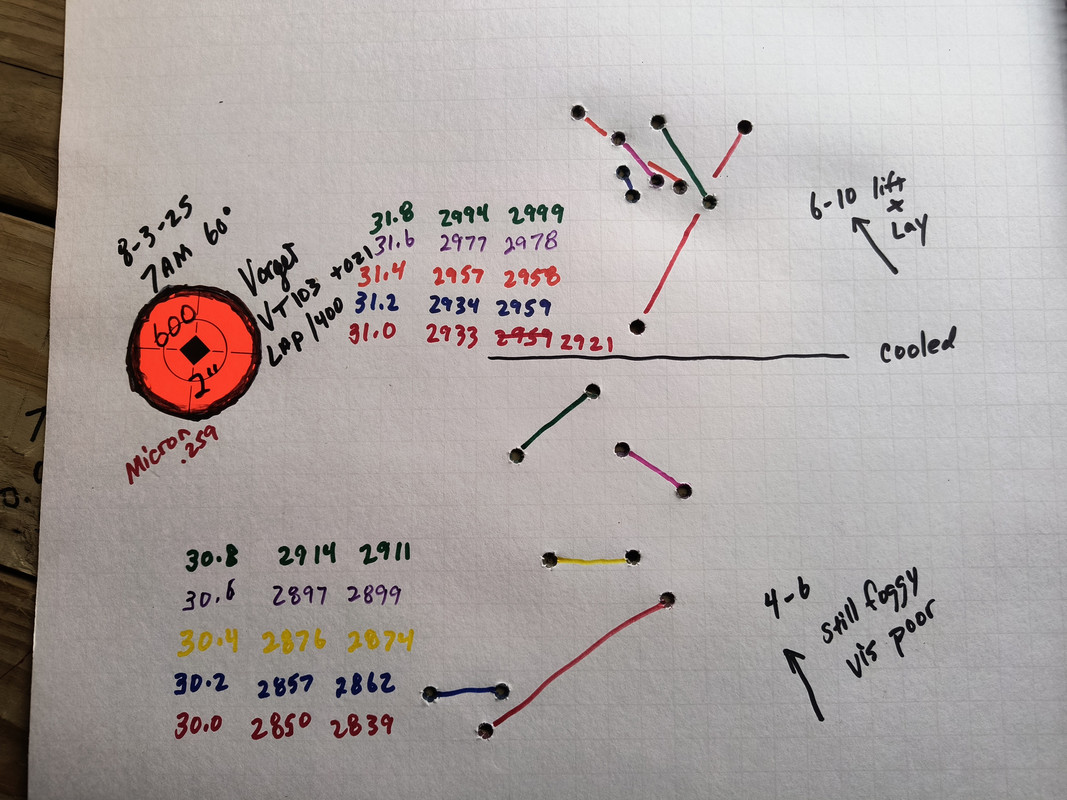 8-3-25
7AM 60°
Varget
VT103 +021
LAP/400
600
2"
Micron
.259
31.8 2994 2999
31.6 2977 2978
31.4 2957 2958
31.2 2934 2959
31.0 2933 2959 2921
6-10 lift
+
Lay
cooled
30.8 2914 2911
30.6 2897 2899
30.4 2876 2874
30.2 2857 2862
30.0 2850 2839
4-6
still foggy
vis poor